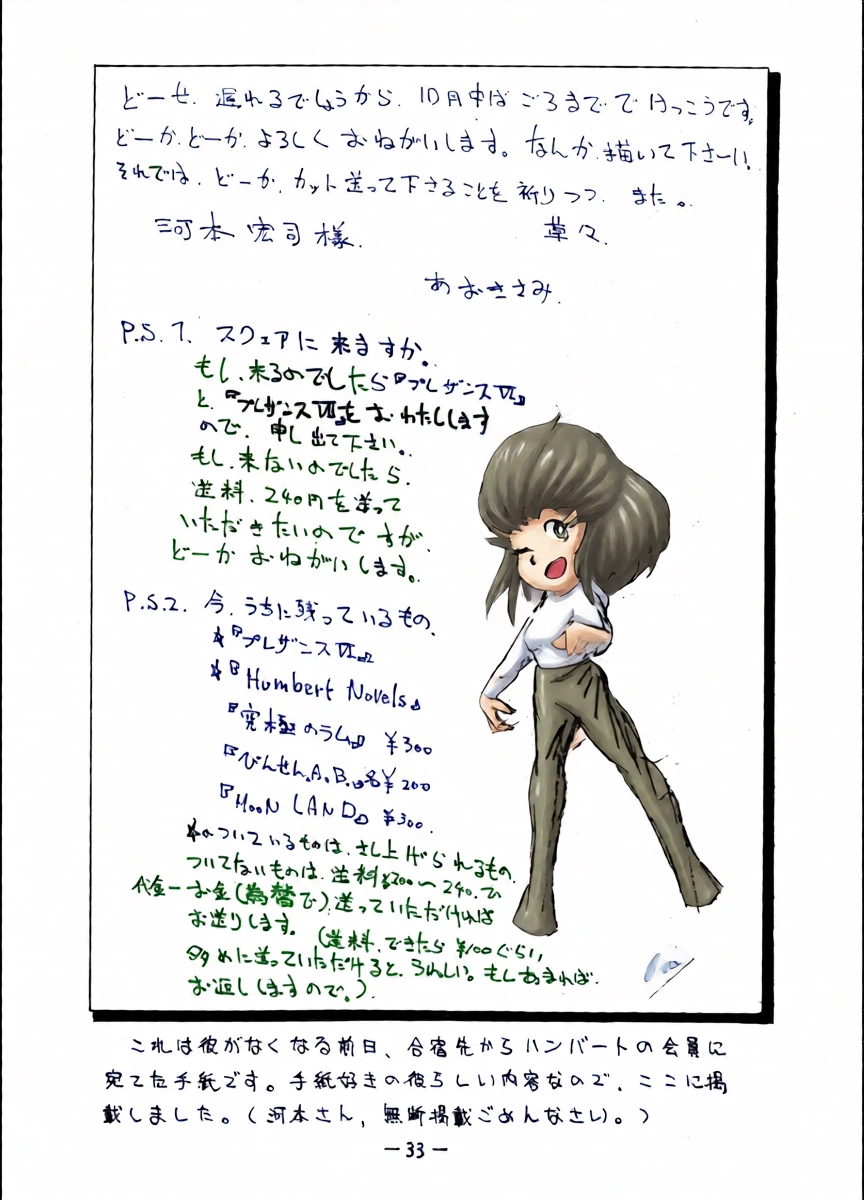 どーせ、遅れるでしょうから、10月中ばごろまででけっこうです。
どーか、どーか、よろしくおねがいします。なんか、描いて下さーい!
それでは、どーか、カット送って下さることを祈りつつ、また。
河本宏司様、 草々、
あおきさみ.
P.S.1. スクェアに来ますか。
もし、来るのでしたら『プレザンスⅥ』
と、『プレザンスⅦ』をおわたしします
ので、申し出て下さい。
もし、来ないのでしたら、
送料、240円を送って
いただきたいのですが、
どーかおねがいします。
P.S.2. 今、うちに残っているもの、
*『プレザンスⅥ』
*『Humbert Novels』
『究極のラム』 ¥300
『びんせん、A.B.』各¥200
『MooN LAND』 ¥300.
*のついているものは、さし上げられるもの、
ついてないものは、送料¥200〜240、ひ
代金ーお金(為替で)送っていただければ
お送りします。 (送料、できたら ¥100ぐらい
多めに送っていただけると、うれしい。もしあまれば、
お返ししますので。)
これは彼がなくなる前日、合宿先からハンバートの会員に
宛てた手紙です。手紙好きの彼らしい内容なので、ここに掲
載しました。(河本さん、無断掲載ごめんなさい。)
— 33 —